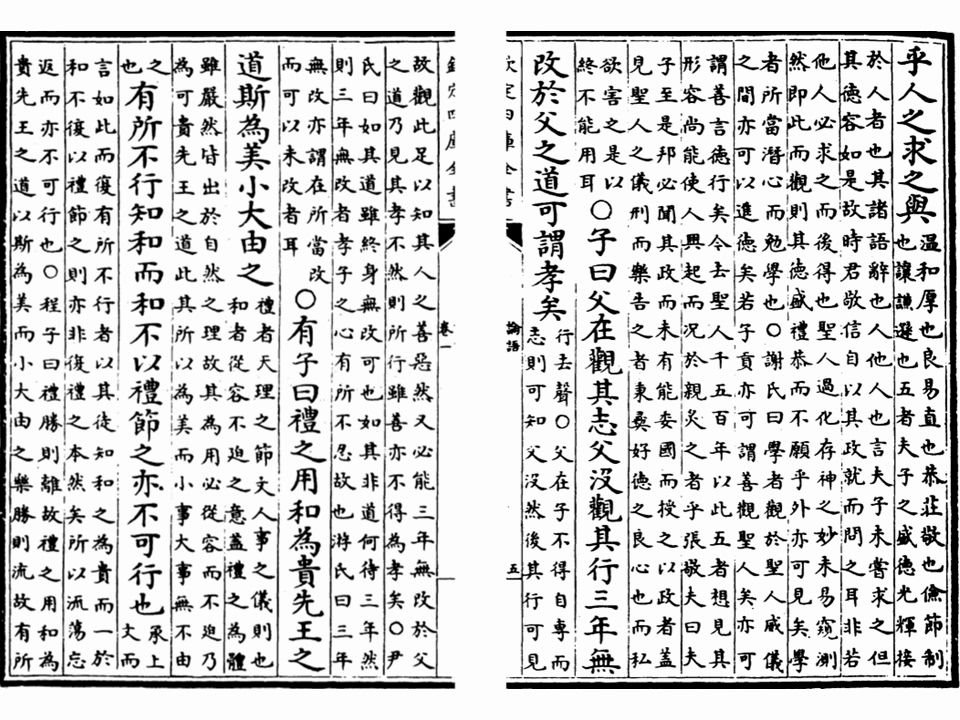 乎人之求之與
溫和厚也良易直也恭莊敬也儉節制
也讓謙遜也五者夫子之盛德光輝接
於人者也其諸語辭也人他人也言夫子未嘗求之但
其德容如是故時君敬信自以其政就而問之耳非若
他人必求之而後得也聖人過化存神之妙未易窺測
然即此而觀則其德盛禮恭而不願乎外亦可見矣學
者所當潛心而勉學也○謝氏曰學者觀於聖人威儀
之間亦可以進德矣若子貢亦可謂善觀聖人矣亦可
謂善言德行矣今去聖人千五百年以此五者想見其
形容尚能使人興起而況於親炙之者乎張敬夫曰夫
子至是邦必聞其政而未有能委國而授之以政者蓋
見聖人之儀刑而樂告之者秉彝好德之良心也而私
欲害之是以
終不能用耳
○子曰父在觀其志父沒觀其行三年無
改於父之道可謂孝矣
行去聲○父在子不得自專而
志則可知父沒然後其行可見
欽定四庫全書
論語
五
欽定四庫全書
卷一
故觀此足以知其人之善惡然又必能三年無改於父
之道乃見其孝不然則所行雖善亦不得為孝矣○尹
氏曰如其道雖終身無改可也如其非道何待三年然
則三年無改者孝子之心有所不忍故也游氏曰三年
無改亦謂在所當改
而可以未改者耳
○有子曰禮之用和為貴先王之
道斯為美小大由之
禮者天理之節文人事之儀則也
和者從容不迫之意蓋禮之為體
雖嚴然皆出於自然之理故其為用必從容而不迫乃
為可貴先王之道此其所以為美而小事大事無不由
之
也
有所不行知和而和不以禮節之亦不可行也
承上
文而
言如此而復有所不行者以其徒知和之為貴而一於
和不復以禮節之則亦非復禮之本然矣所以流蕩忘
返而亦不可行也○程子曰禮勝則離故禮之用和為
貴先王之道以斯為美而小大由之樂勝則流故有所